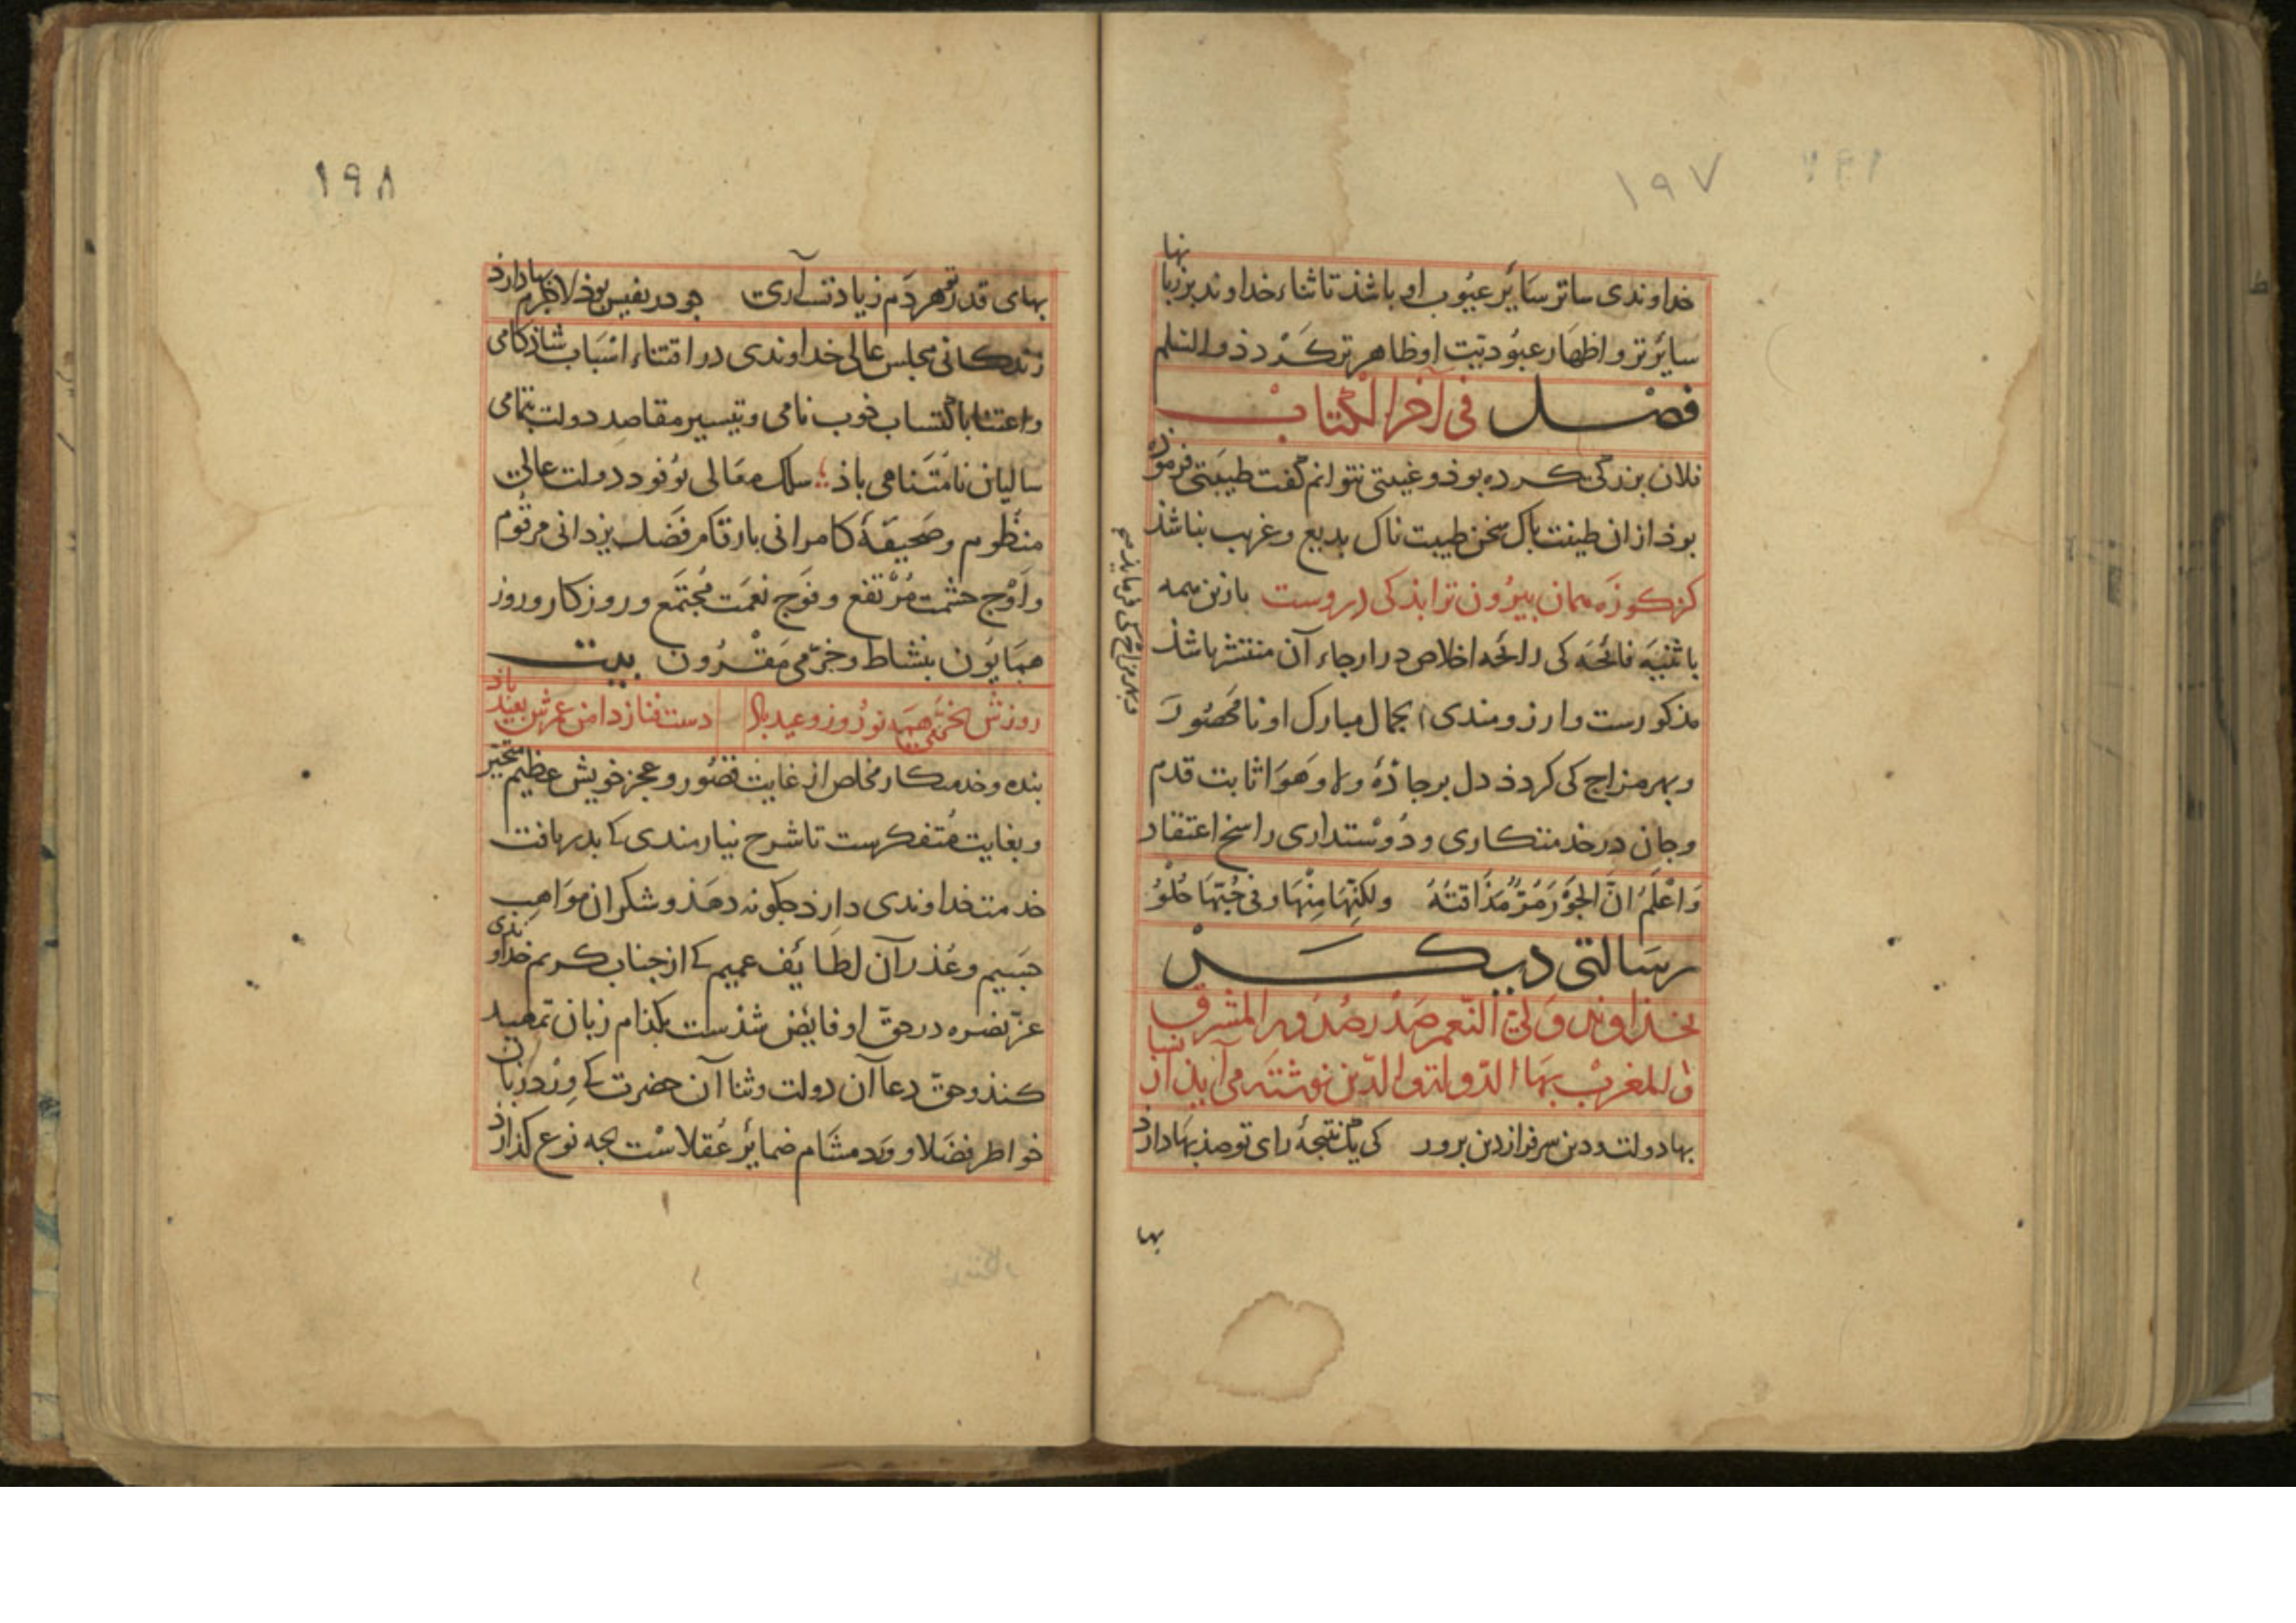 ۱۹۷
خداوندی ساتر سائر عیوب او باشذ تا ثناء خداوند بر زبانها
سائرتر و اظهار عبودیت او ظاهرتر کردد والسلم
فصل فی آخر الکتاب
فلان بزرکی کرده بوذ و غیبتی نتوانم کفت طیبتی فرموده
بوذ از ان طینت پاک سخن طیبت ناک بدیع و غریب نباشذ
کز کوزه همان بیرون ترابذ کی دروست با زین همه
رائحه اخلاص در ارجاء آن منتشر باشذ
مذکورست و ارزومندی بجمال مبارک او نامحصور
وبهر مزاج کی کردذ دل بر جاذۀ ولا و هوا ثابت قدم
وجان در خدمتکاری و دوستداری راسخ اعتقاد
وَاعلم انّ الجَوْرَ مُرٌّ مَذَاقتُهُ ولکنّها مِنْهَا و فی حُبّهَا حُلْوُ
رسالتی دیکر
بخداوند ولی النعم صدر صدور المشرق
والمغرب بها الدولة والدین نوشته می آید از نسا
بها دولت و دین سرفراز دین برور کی یک نتیجۀ رای تو صذ بها دارذ
بها
۱۹۸
بهای قدر تو هر دم زیادتست آری چو در نفیس بوذ لاجرم بها دارذ
زندکانی مجلس عالی خداوندی در اقتناء اسباب شاذکامی
واعتنا باکتساب خوب نامی و تیسیر مقاصد دولت بتمامی
سالیان نامتناهی باذ سلک معالی بوفور دولت عالی
منظوم و صحیفۀ کامرانی بارقام فضل یزدانی مرقوم
واوج حشمت مرتفع و فوج نعمت مجتمع و روزکار و روز
همایون بنشاط و خرمی مقرون بیت
دست فنا ز دامن عمرش بعید باذ
بنده و خدمتکار مخلص از غایت قصور و عجز خویش عظیم متحیر
وبغایت متفکرست تا شرح نیازمندی که بدریافت
خدمت خداوندی دارذ چکونه دهذ و شکر ان مواهب
جسیم و عذر آن لطائف عمیم که از جناب کریم خداوندی
عز نصره در حق او فایض شذست بکذام زبان تمهید
کنذ و حق دعا آن دولت و ثنا آن حضرت که ورد زبان
خواطر فضلا و ورد مشام ضمائر عقلاست بچه نوع کذارذ